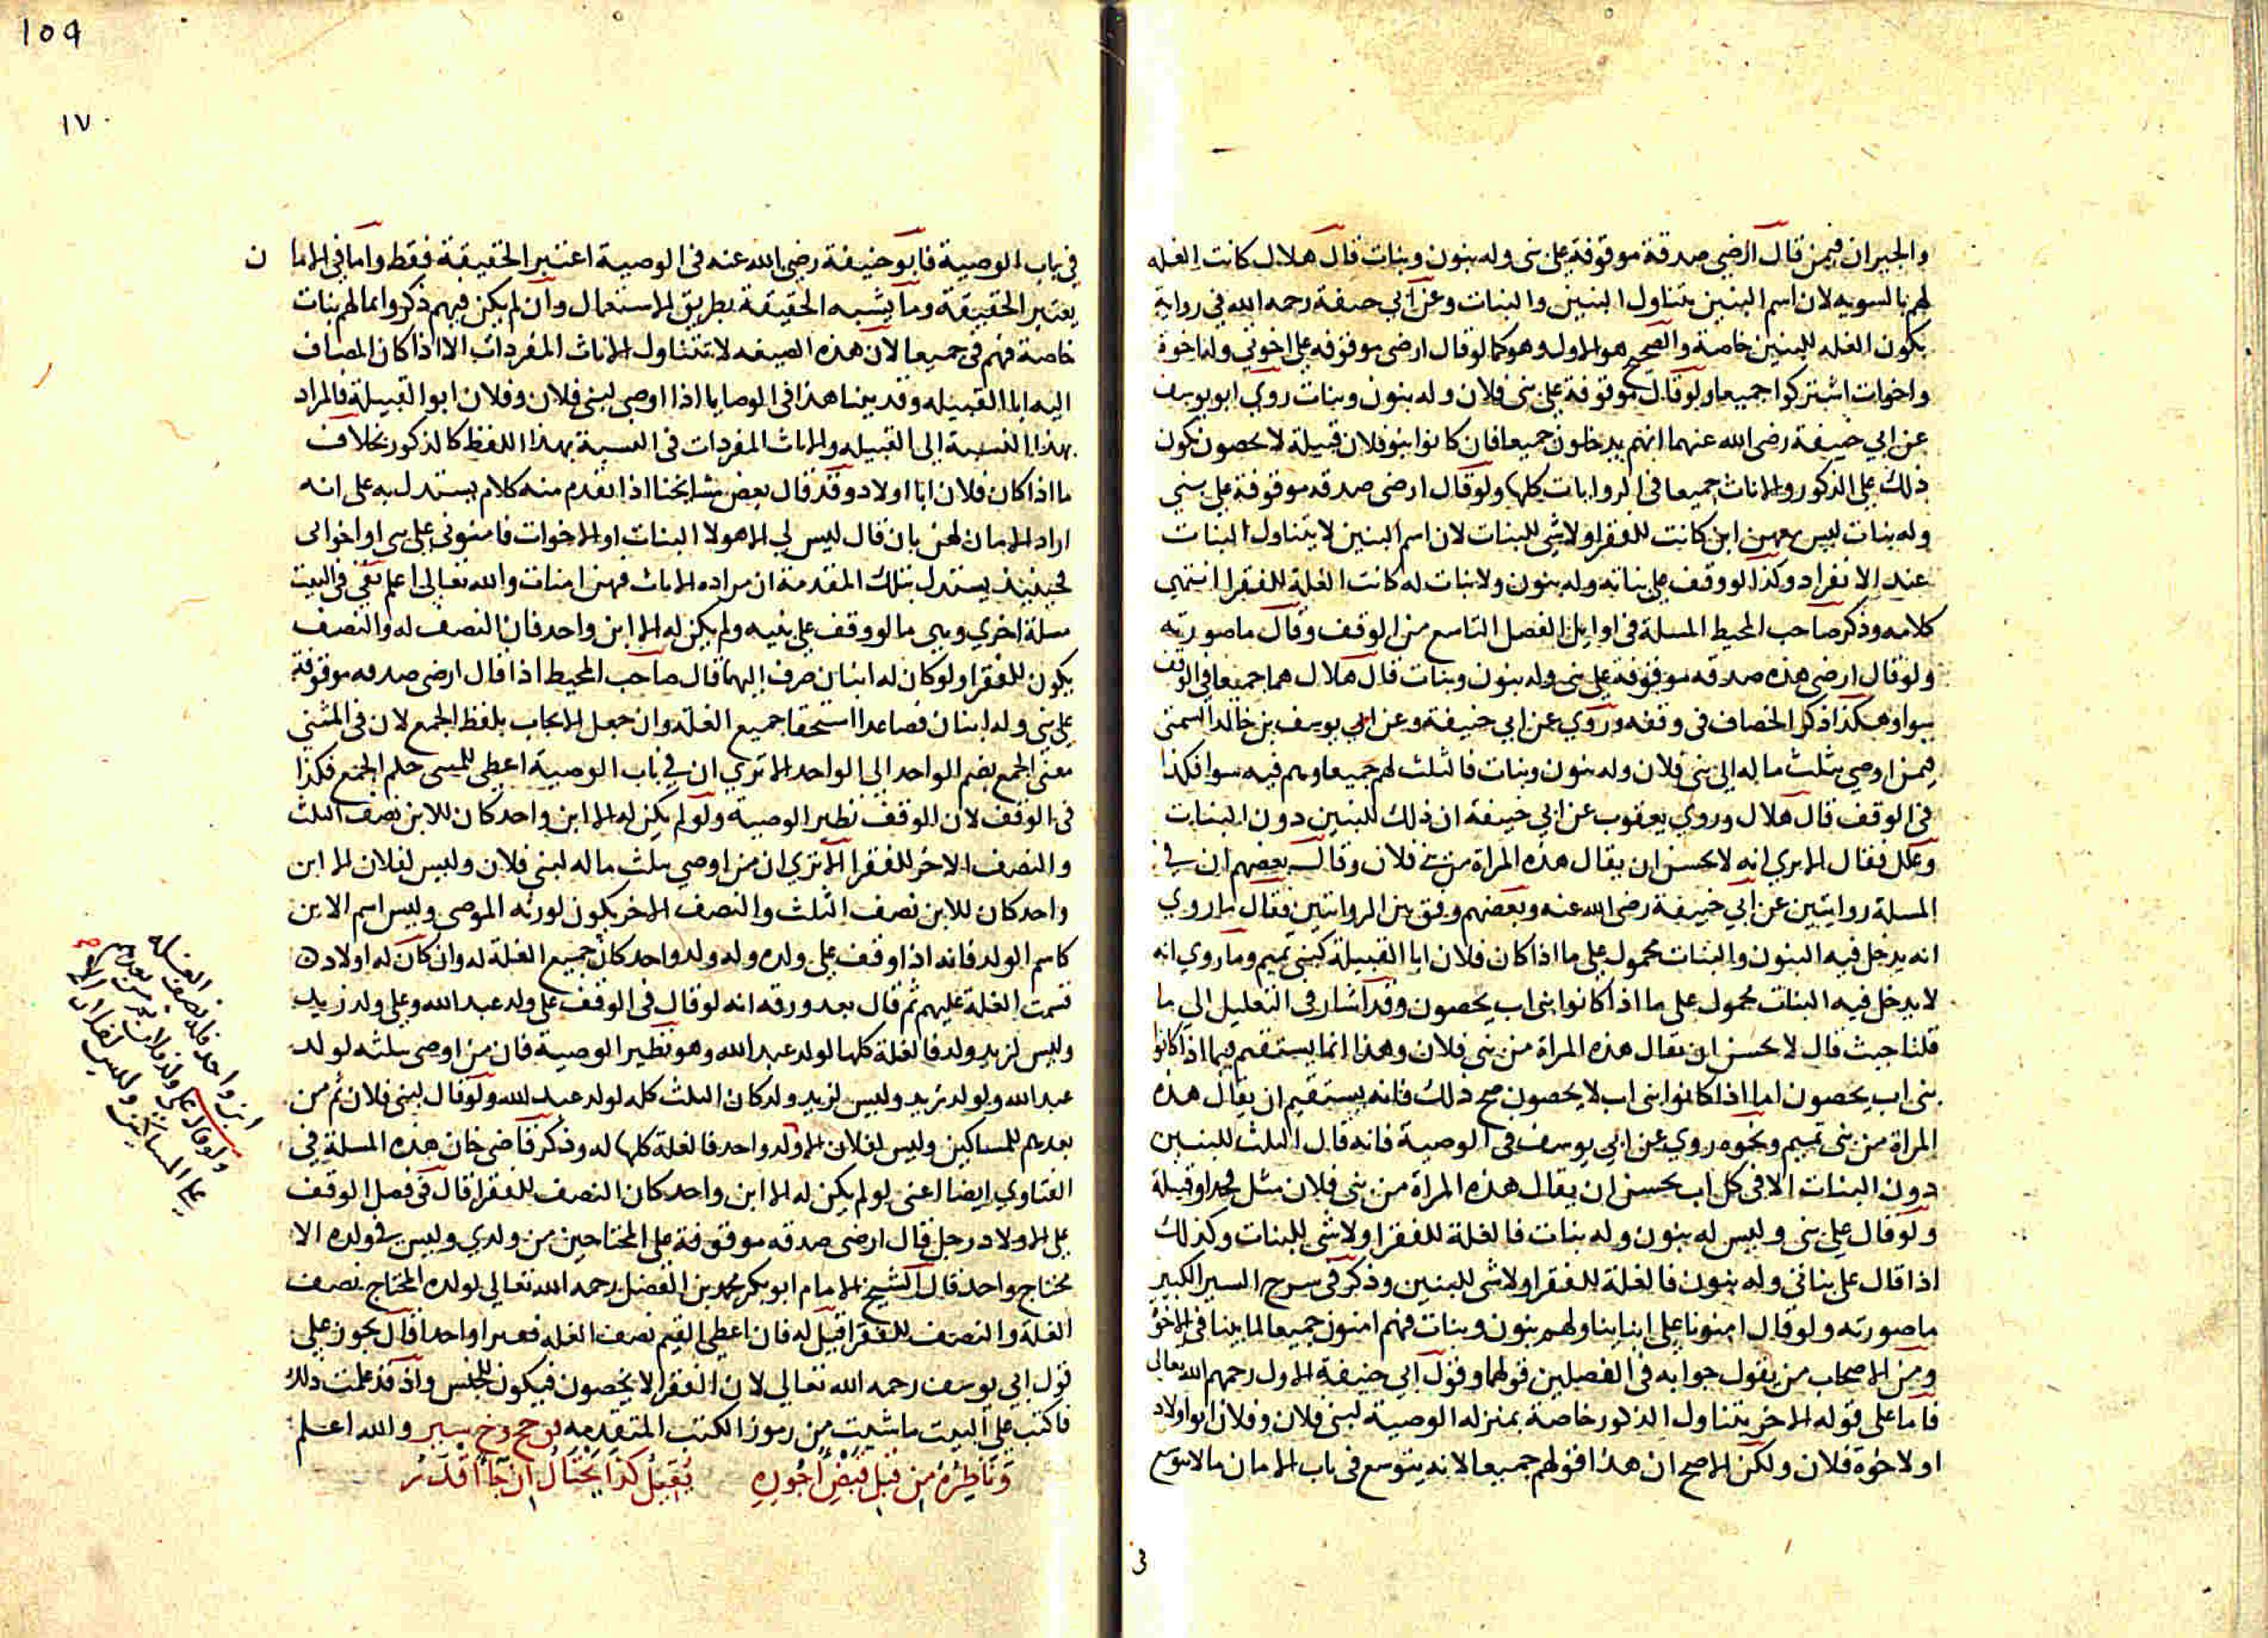 والجيران فيمن قال ارضى صدقة موقوفة على بنى وله بنون وبنات قال هلال كانت الغله
لهم بالسويه لان اسم البنين يتناول البنين والبنات وعن ابي حنيفة رحمه الله في رواية
يكون الغله للبنين خاصة والصحيح هو الاول وهو كما لو قال ارضى موقوفه على اخوتي وله اخوة
واخوات اشتركوا جميعا ولو قال موقوفة على بنى فلان وله بنون وبنات روي ابو يوسف
عن ابي حنيفة رضى الله عنهما انهم يدخلون جميعا فان كانوا بنو فلان قبيلة لا يحصون تكون
ذلك على الذكور والاناث جميعا في الروايات كلها ولو قال ارضى صدقه موقوفة على بني
وله بنات ليس معهن ابن كانت للفقرا ولا شى للبنات لان اسم البنين لا يتناول البنات
عند الانفراد وكذا لو وقف على بناته وله بنون ولا بنات له كانت الغلة للفقرا انتهى
كلامه وذكر صاحب المحيط المسلة في اوايل الفصل التاسع من الوقف وقال ما صورته
ولو قال ارضى هذه صدقه موقوفة على بنى وله بنون وبنات قال هلال هما جميعا في الوقف
سوا وهكذا ذكر الخصاف في وقفه وروي عن ابي حنيفة وعن ابي يوسف بن خالد السمتى
فيمن اوصي بثلث ماله الى بنى فلان وله بنون وبنات فالثلث لهم جميعا وهم فيه سوا فكذا
في الوقف قال هلال وروي يعقوب عن ابي حنيفة ان ذلك للبنين دون البنات
وعلل فقال الا يري انه لا يحسن ان يقال هذه المراة من بنى فلان وقال بعضهم ان في
المسلة روايتين عن ابي حنيفة رضى الله عنه وبعضهم وفق بين الروايتين فقال ما روي
انه يدخل فيه البنون والبنات محمول على ما اذا كان فلان ابا القبيلة كبنى تميم وما روي انه
لا يدخل فيه البنات محمول على ما اذا كانوا بنى اب يحصون وقد اشار في التعليل الي ما
قلنا حيث قال لا يحسن ان يقال هذه المراة من بنى فلان وهذا انما يستقيم فيما اذا كانوا
بنى اب يحصون اما اذا كانوا بنى اب لا يحصون صح ذلك فانه يستقيم ان يقال هذه
المراة من بنى تميم ونحوه روي عن ابي يوسف في الوصية فانه قال الثلث للبنين
دون البنات الا في كل اب يحسن ان يقال هذه المراة من بنى فلان مثل فخذ او قبيلة
ولو قال على بنى وليس له بنون وله بنات فالغلة للفقرا ولا شى للبنات وكذلك
اذا قال على بناتى وله بنون فالغلة للفقرا ولا شى للبنين وذكر في شرح السير الكبير
ما صورته ولو قال امنونا على ابناينا ولهم بنون وبنات فهم امنون جميعا لما بينا في الاخوة
ومن الاصحاب من يقول جوابه في الفصلين قولهما وقول ابي حنيفة الاول رحمهم الله تعالى
فاما على قوله الاخر يتناول الذكور خاصة بمنزله الوصية لبنى فلان وفلان ابو اولاد
او لاخوة فلان ولكن الاصح ان هذا قولهم جميعا لانه يتوسع في باب الامان ما لا يتوسع
في
109
١٧
في باب الوصية فابو حنيفة رضى الله عنه في الوصية اعتبر الحقيقة فقط واما في الاما ن
يعتبر الحقيقة وما يشبه الحقيقة بطريق الاستعمال وان لم يكن فيهم ذكر وانما لهم بنات
خاصة فهم في جميعا لان هذه الصيغه لا تتناول الاناث المفردات الا اذا كان المضاف
اليه ابا القبيله وقد بينا هذا في الوصايا اذا اوصى لبنى فلان وفلان ابو القبيلة فالمراد
بهذا النسبة الى القبيله والاناث المفردات في النسبة بهذا اللفظ كالذكور بخلاف
ما اذا كان فلان ابا اولاد وقد قال بعض مشايخنا اذا تقدم منه كلام يستدل به على انه
اراد الامان لهن بان قال ليس لي الا هولا البنات او الاخوات فامنونى على بنى او اخواتى
فحينيذ يستدل بتلك المقدمة ان مراده الاناث فهن امنات والله تعالى اعلم بقى في البيت
مسلة اخري وهي ما لو وقف على بنيه ولم يكن له الا ابن واحد فان النصف له والنصف
يكون للفقرا ولو كان له ابنان صرف اليهما قال صاحب المحيط اذا قال ارضى صدقه موقوفة
على بنى وله ابنان فصاعدا استحقا جميع الغلة وان جعل الايجاب بلفظ الجمع لان في المثنى
معنى الجمع بضم الواحد الي الواحد الا تري ان في باب الوصية اعطى للمثنى حكم الجمع فكذا
في الوقف لان الوقف نظير الوصية ولو لم يكن له الا ابن واحد كان للابن نصف الثلث
والنصف الاخر للفقرا الا تري ان من اوصي بثلث ماله لبنى فلان وليس لفلان الا ابن
واحد كان للابن نصف الثلث والنصف الاخر يكون لورثه الموصى وليس اسم الابن
كاسم الولد فانه اذا وقف على ولده وله ولد واحد كان جميع الغلة له وان كان له اولاد
قسمت الغلة عليهم ثم قال بعد ورقه انه لو قال في الوقف على ولد عبد الله وعلى ولد زيد
وليس لزيد ولد فالغلة كلها لولد عبد الله وهو نظير الوصية فان من اوصى بثلثه لولد
عبد الله ولولد زيد وليس لزيد ولد كان الثلث كله لولد عبد الله ولو قال لبنى فلان ثم من
بعدهم للمساكين وليس لفلان الا ولد واحد فالغلة كلها له وذكر قاضى خان هذه المسلة في
الفتاوي ايضا اعنى لو لم يكن له الا ابن واحد كان النصف للفقرا قال في فصل الوقف
على الاولاد رجل قال ارضى صدقه موقوفة على المحتاجين من ولدي وليس في ولده الا
محتاج واحد قال الشيخ الامام ابو بكر محمد بن الفضل رحمه الله تعالي لولده المحتاج نصف
الغلة والنصف للفقرا قيل له فان اعطى القيم نصف الغله فقيرا واحدا قال يجوز على
قول ابي يوسف رحمه الله تعالي لان الفقرا لا يحصون فيكون للجنس واذ قد علمت ذلك
فاكتب على البيت ما شيت من رموز الكتب المتقدمه والله اعلم
وناظره من قبل قبض اجوره يقبل كذا يحتال ان جا اقدر
ابن واحد فله نصف الغله
ولو قال على ولد فلان ثم من بعدهم
على المساكين وليس لفلان الا